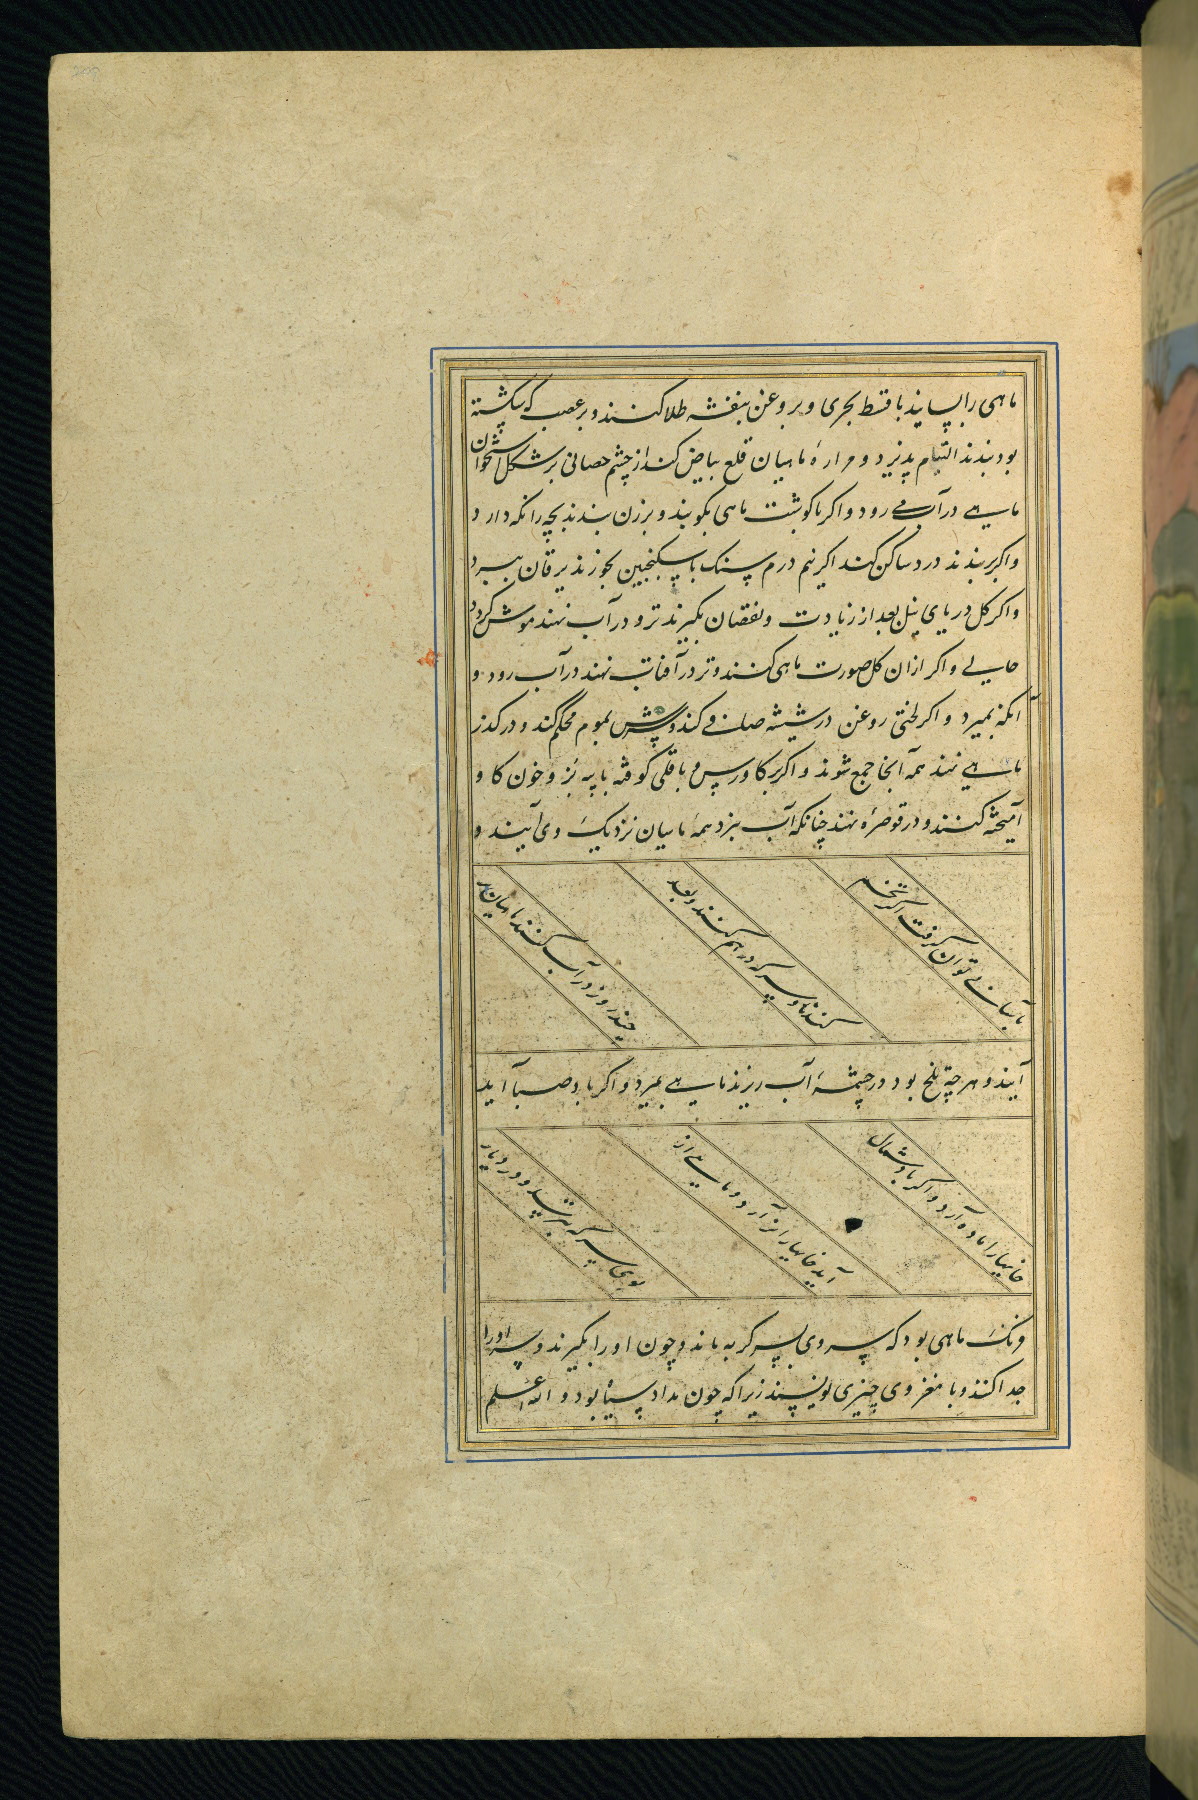 ماهی را بسایند با قسط بحری و بروغن بنفشه طلا کنند و بر عصب که شکسته
بود بندند التیام پذیرد و مرارهٔ ماهیان قلع بیاض کند از چشم حصانی بر شکل استخوان
ماهی در آب می رود و اکر با کوشت ماهی بکوبند و بر زن بندند بچه را نکه دارد
و اکر بر بندند درد ساکن کند اکر نیم درم سنک با سکنجبین بخورند یرقان ببرد
و اکر کل دریای نیل بعد از زیادت و نقصان بکیرند تر و در آب نهند موش کردد
حالی و اکر ازان کل صورت ماهی کنند و تر در آفتاب نهند در آب رود و
آنکه بمیرد و اکر لختی روغن در شیشه صافی کند و سرش بموم محکم کند و در کذر
ماهی نهند همه آنجا جمع شوند و اکر کاورس و باقلی کوفته با پیه بز و خون کاو
آمیخته کنند و در قوصره نهند چنانکه آب ببرد همهٔ ماهیان نزدیک وی آیند و
بآسانی توان کرفت اکر تخم
کنند و سرکه درهم کنند و بعد
چند روز در آب کنند ماهیان بر
آیند و هرچه تلخ بود در چشمهٔ آب ریزند ماهی بمیرد و اکر باد صبا آید
خانها را ماده آرد و اکر باد شمال
آید خانها را نر آرد و ماهی از
بوی سیر که بترسد و در دیار
فرنک ماهی بود که سر وی بسر کربه ماند و چون او را بکیرند و سر او را
جدا کنند و با مغز وی چیزی نویسند زیرا که چون مداد سیاه بود و الله اعلم